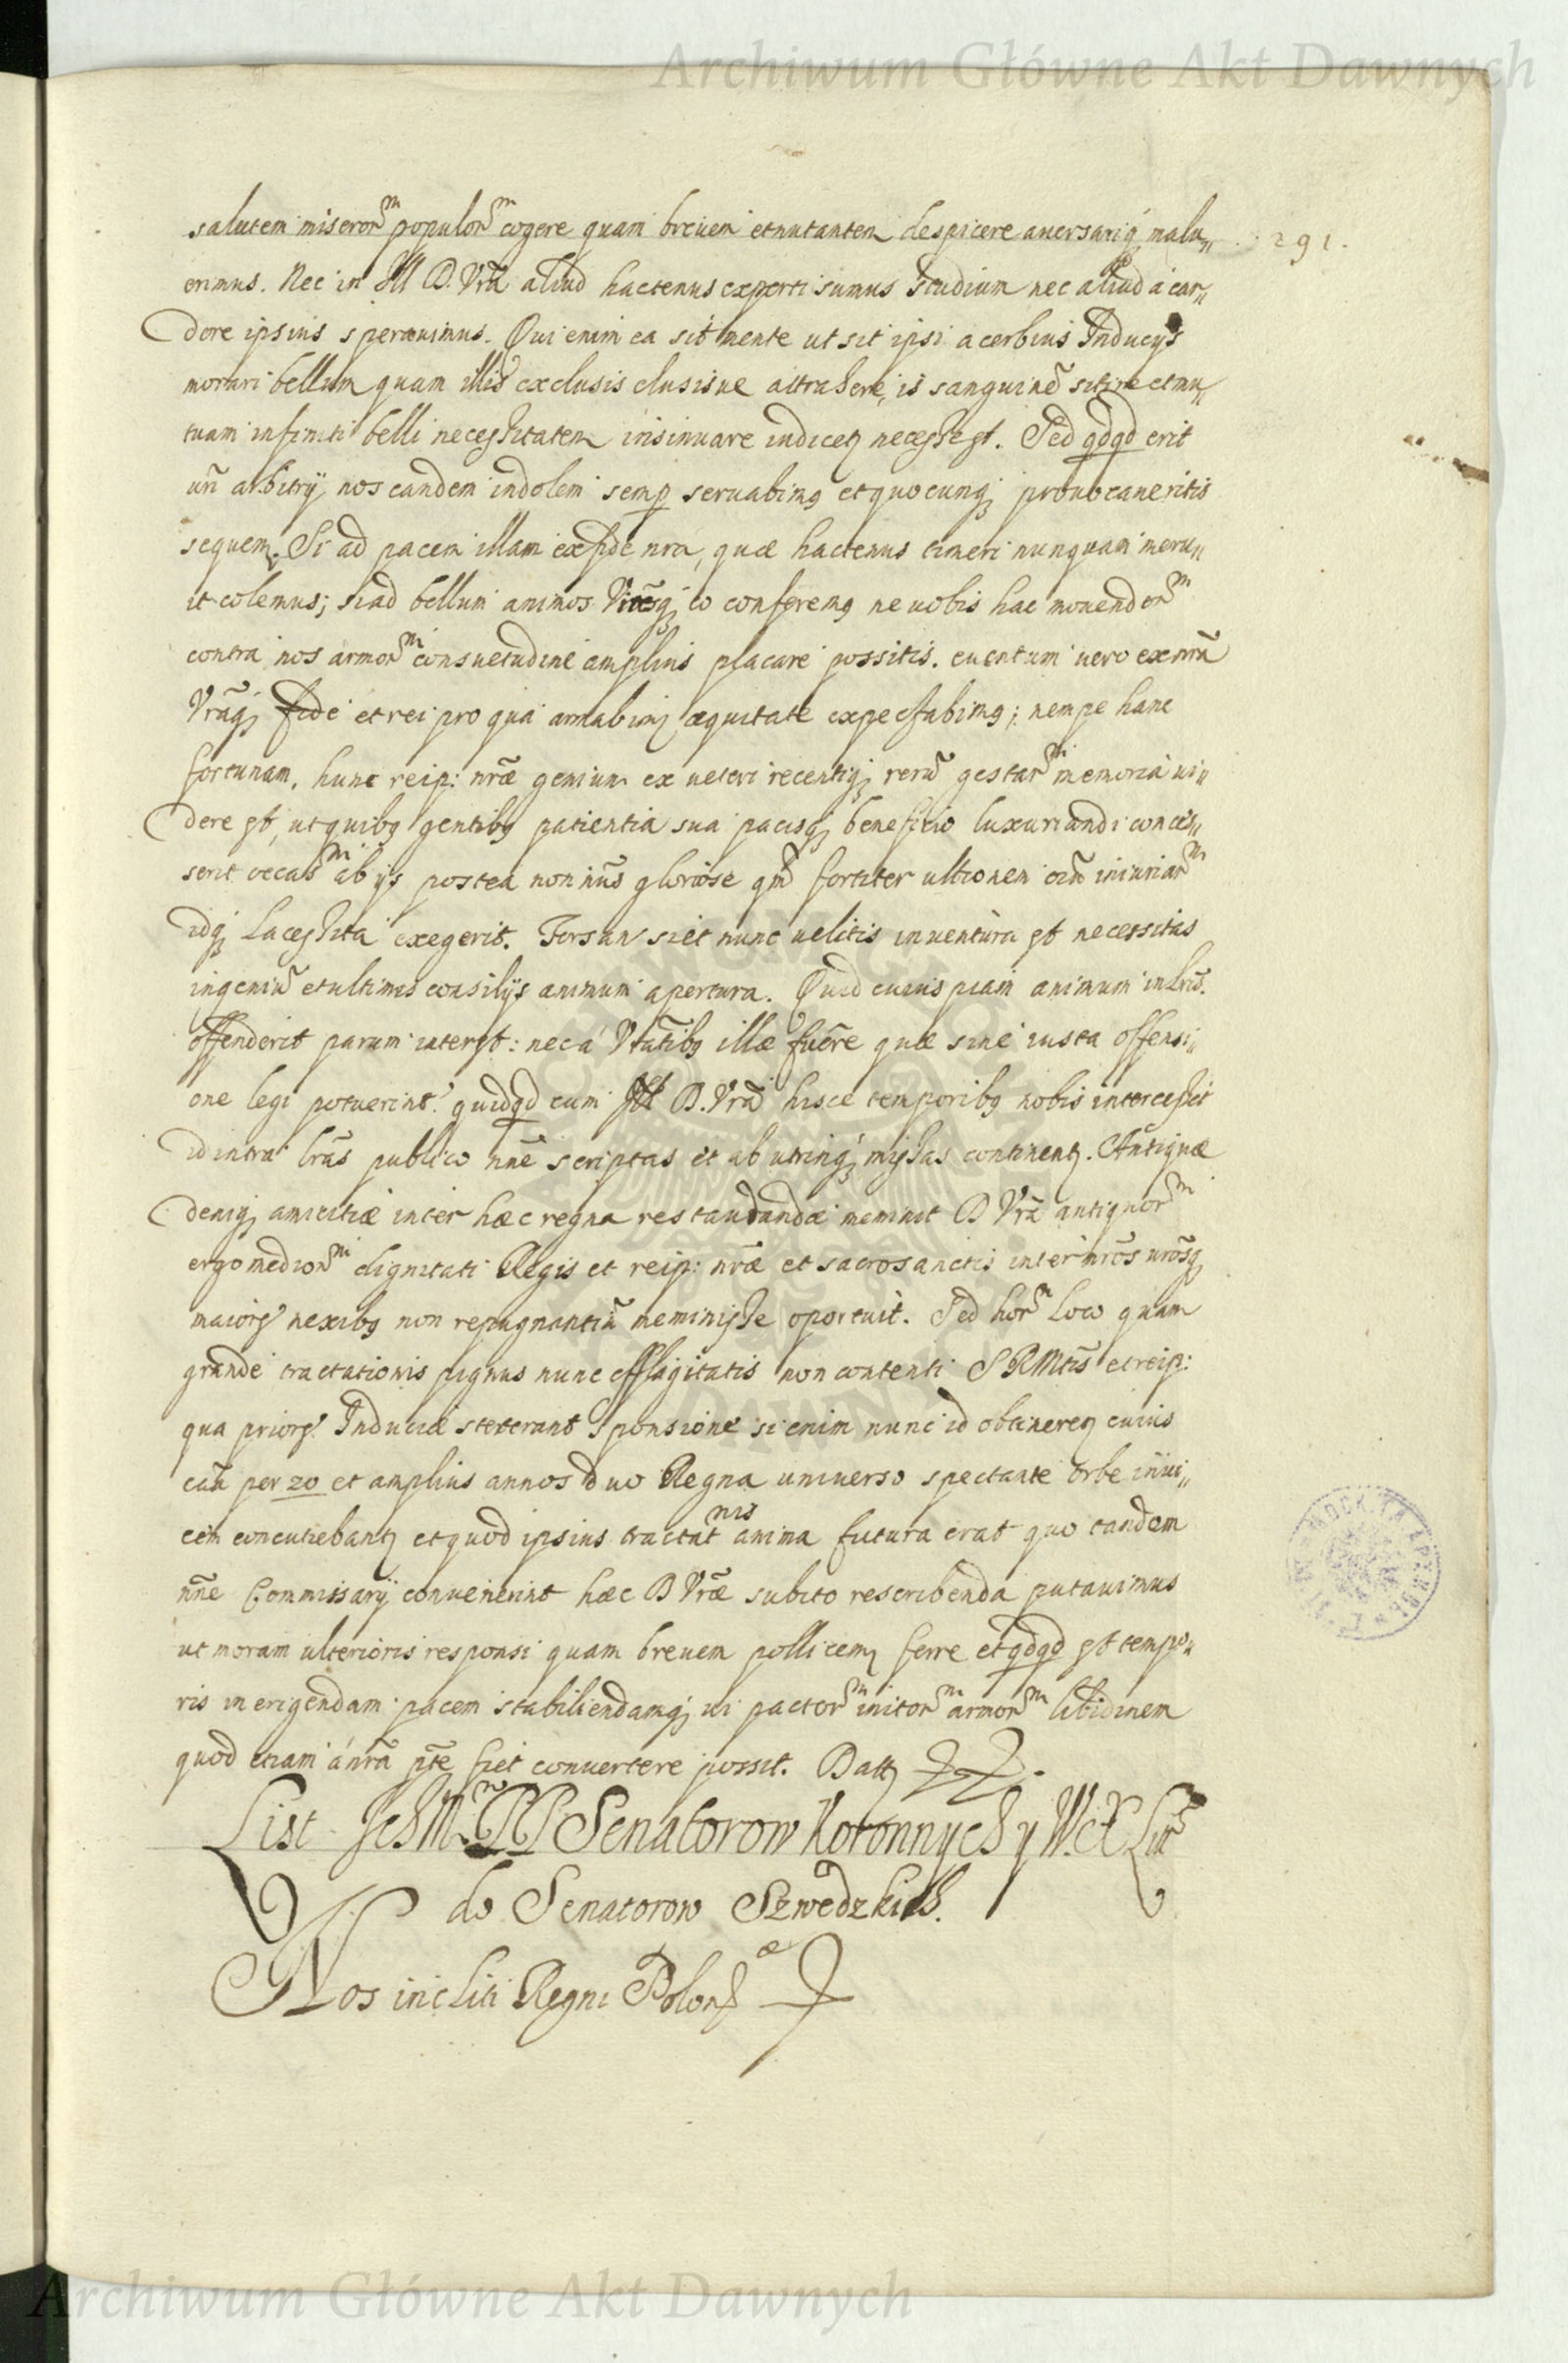 Archiwum Główne Akt Dawnych
salutem miseror͂m populor͂m cogere quam breuem et nutantem despicere auersariq́ malu„
291.
erimus. Nec in Ill D. Vrã aliud hactenus experti sumus studium nec aliud a can„
dore ipsius sperauimus. Qui enim ea sit mente ut sit ipsi acerbius Inducijs
morari bellum quam illis exclusis elusisue attrahere, is sanguinẽ sitire et mu„
tuam infiniti belli necessitatem insinuare indicetʒ necesse est. Sed qdqd erit
ur̃i arbitrij, nos eandem indolem semp seruabimꝰ et quocunqʒ prouocaueritis
sequemʒ. Si ad pacem illam ex fide nrã, quæ hactenus timeri nunquam meru„
it colemus; si ad bellum animos Viresqʒ eo conferemꝰ ne uobis hac mouendor͂m
contra nos armor͂m consuetudine amplius placare possitis. euentum uero ex nrã
Vrãqʒ fide et rei pro qua armabimʒ æquitate expectabimꝰ; nempe hanc
fortunam, hunc reip: nrẽ genium ex ueteri recentiqʒ rerũ gestar͂m memoria ui„
dere est, ut quibꝰ gentibꝰ patientia sua pacisqʒ beneficio luxuriandi conces„
serit ab ijs postea non minũs gloriose qm̃ fortiter ultionem iniuriar͂m
idqʒ Lacessita exegerit. Forsan si et nunc uelitis inuentura est necessitas
ingeniũ et ultimis consilijs animum apertura. Quid cuius piam animum in lrĩs
offenderit parum interest: nec a Vrãtibꝰ illæ fuẽre quæ sine iusta offensi„
one legi potuerint. quidqd cum Ill D. Vrã hisce temporibꝰ nobis intercessit
id intra lrãs publico nñe scriptas et ab utrinqʒ missas continentʒ. Antiquæ
deniqʒ amicitiæ inter hæc regna restaurandæ meminit D Vrã antiquor͂m
ergo medior͂m dignitati Regis et reip: nrẽ et sacrosanctis inter nrõs urõsqʒ
maiores nexibꝰ non repugnantiũ meminisse oportuit. Sed hor͂m Loco quam
grande tractationis pignus nunc efflagitatis non contenti S R Mtĩs et reip:
qua priores Induciæ steterant sponsione si enim nunc id obtineretʒ cuius
cãu per 20 et amplius annos duo Regna uniuerso spectante Orbe inui„
cem concutiebantʒ et quod ipsius tractatnis anima futura erat quo tandem
nñe Commissarij conuenerint hæc D Vrẽ subito rescribenda putauimus
ut moram ulterioris responsi quam breuem pollicemʒ ferre et qdqd est tempo„
ris in erigendam pacem stabiliendamqʒ ui pactor͂m initor͂m armor͂m libidinem
quod etiam a nrã pr̃te fiet conuertere possit. Datʒ
List IchM PP Senatorow Koronnych y W. X Lit
do Senatorow Szwedzkich.
Nos incliti Regni Poloniæ
Archiwum Główne Akt Dawnych